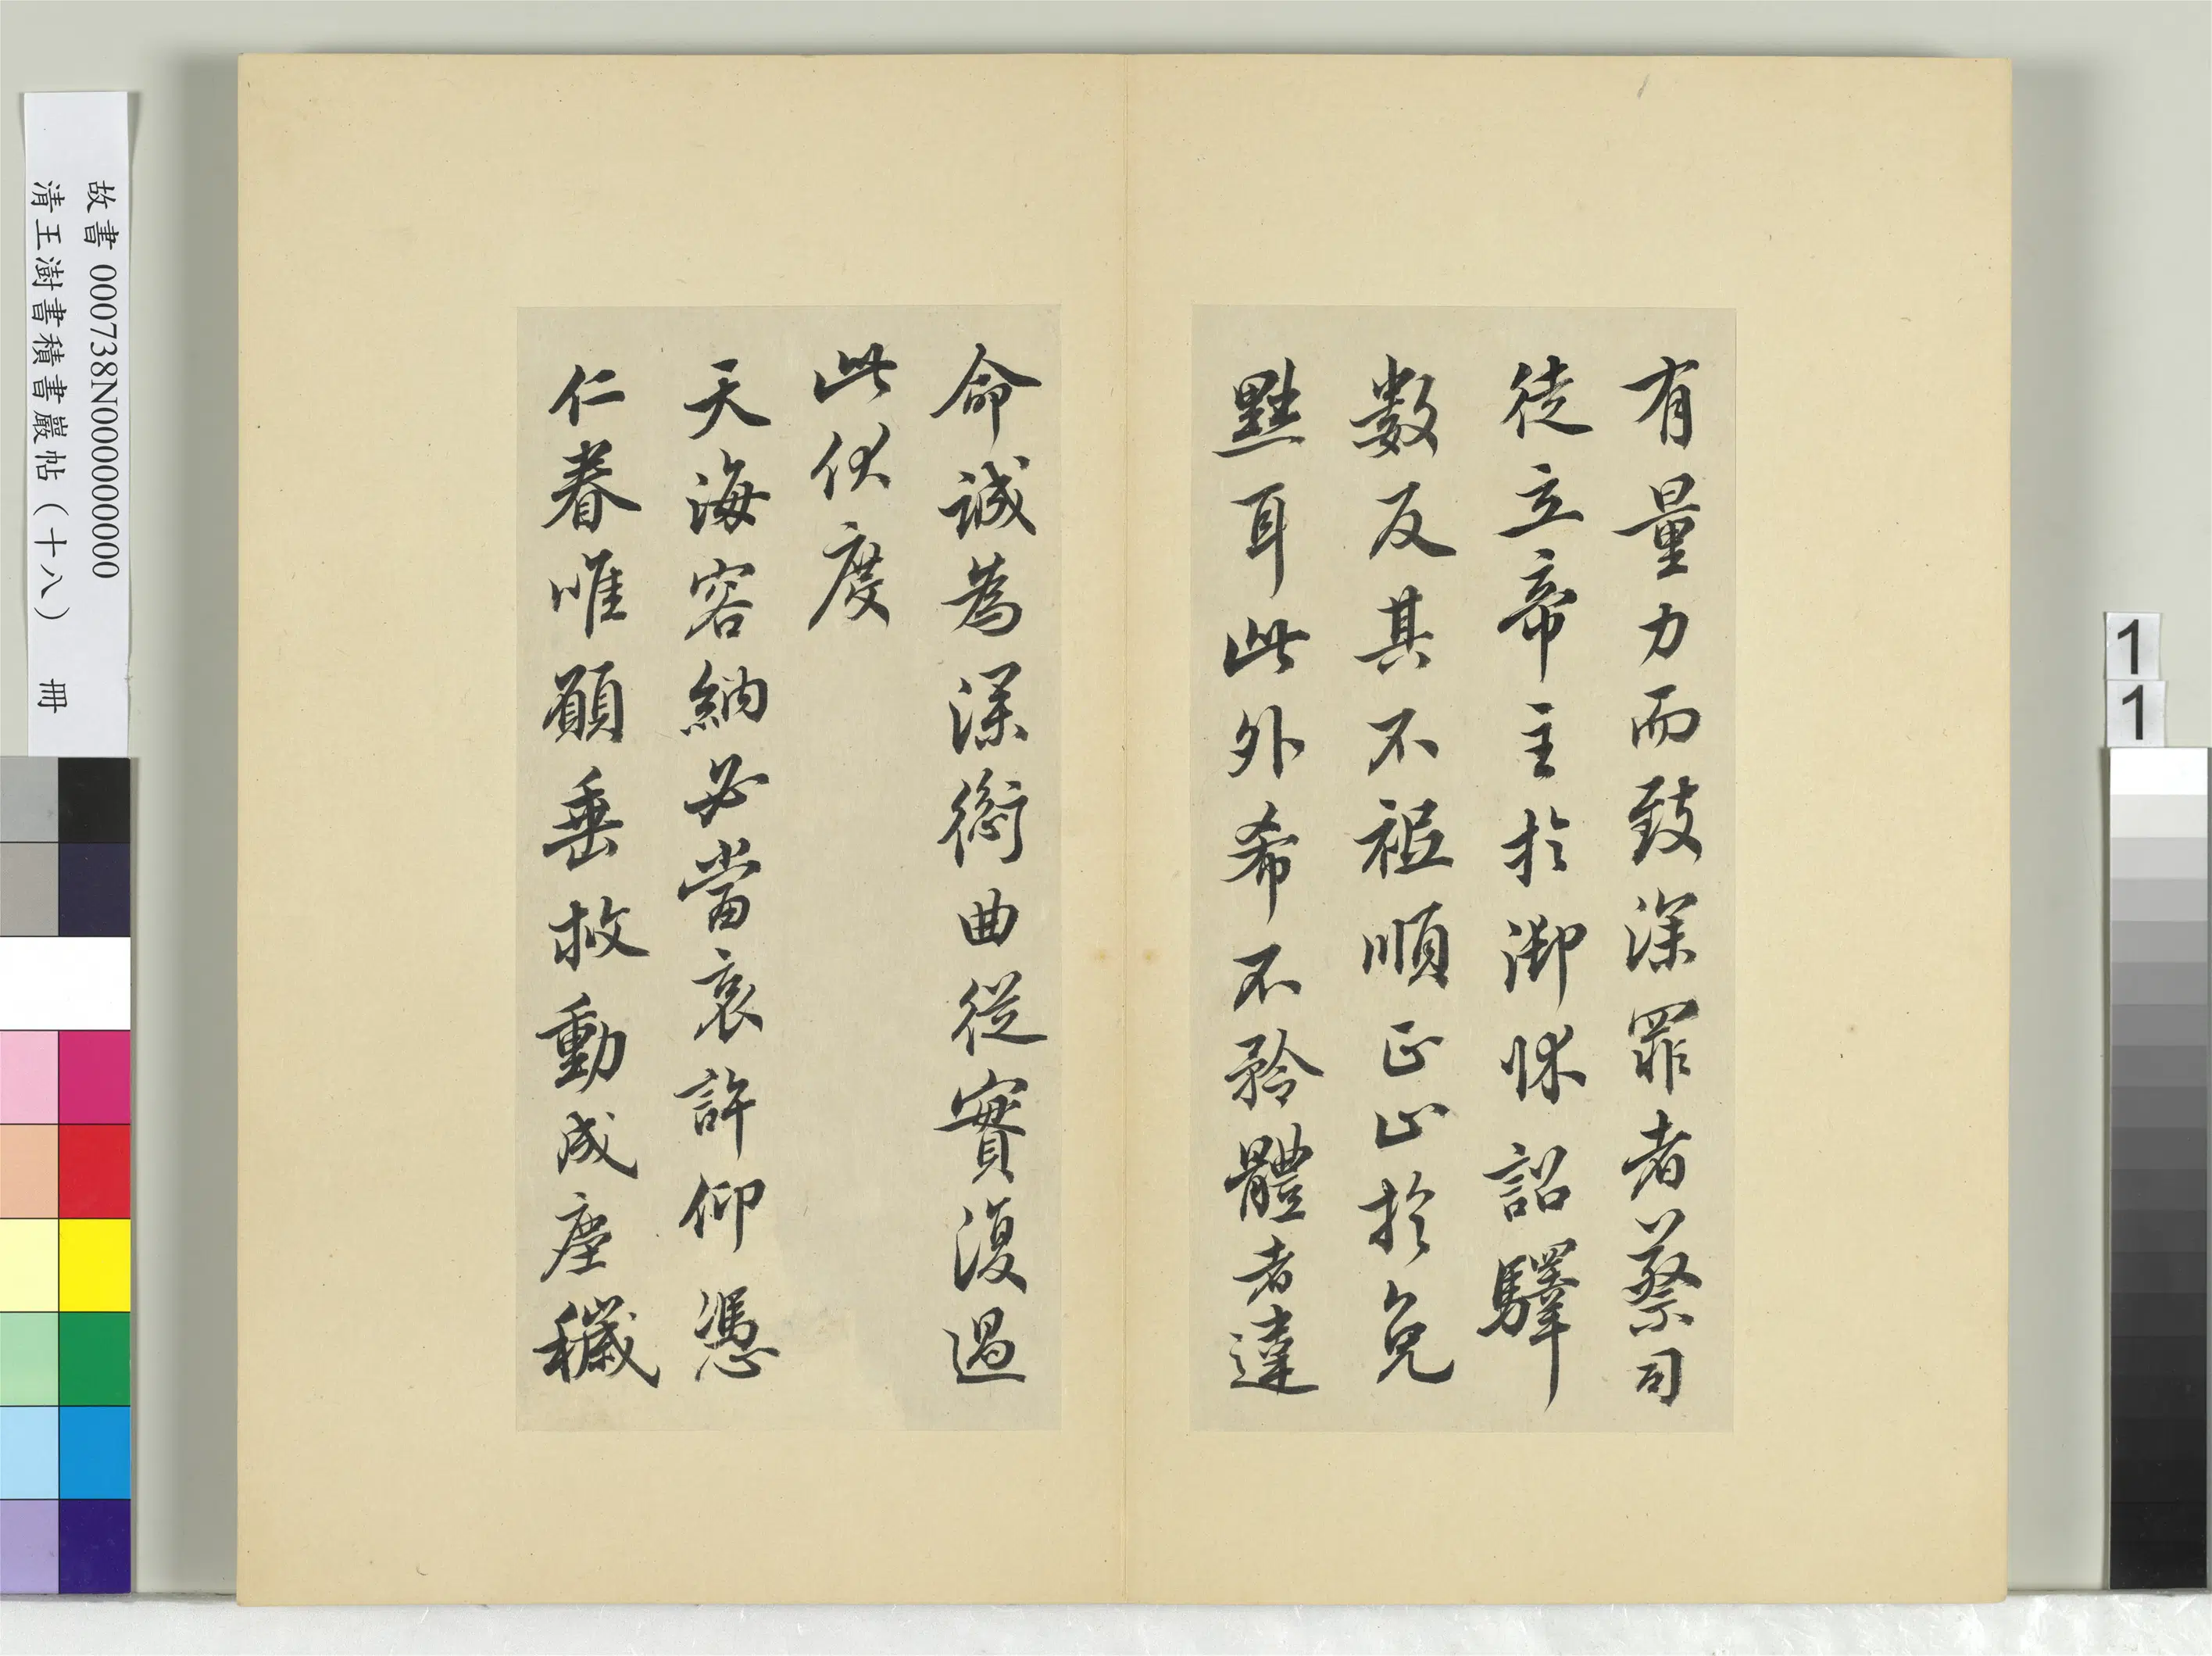 有量力而致深罪者蔡司
徒立帝主於御牀詔驛
數反其不祖順正止於免
黜耳此外希不矜體者達
命誠爲深銜曲從實復過
此伏度
天海容納必當哀許仰憑
仁眷唯願垂救動成塵穢
故書 000738N000000000
清王澍書積書巖帖(十八) 冊
1
1